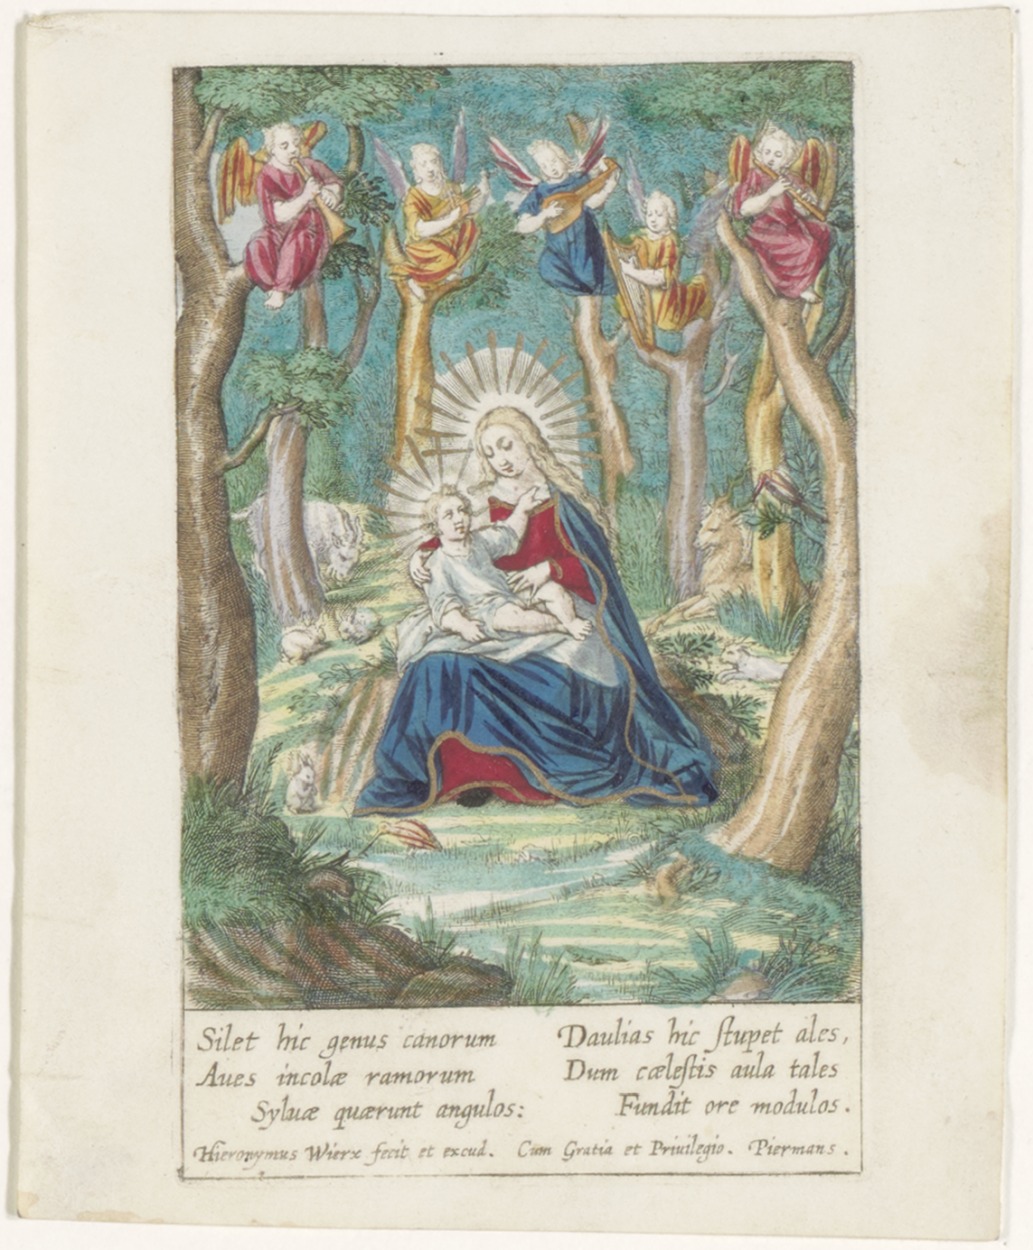 Silet hic genus canorum
Aues incolæ ramorum
Syluæ quærunt angulos:
Daulias hic ſtupet ales,
Dum cæleſtis aula tales
Fundit ore modulos.
Hieronymus Wierx fecit et excud. Cum Gratia et Priuilegio. Piermans.